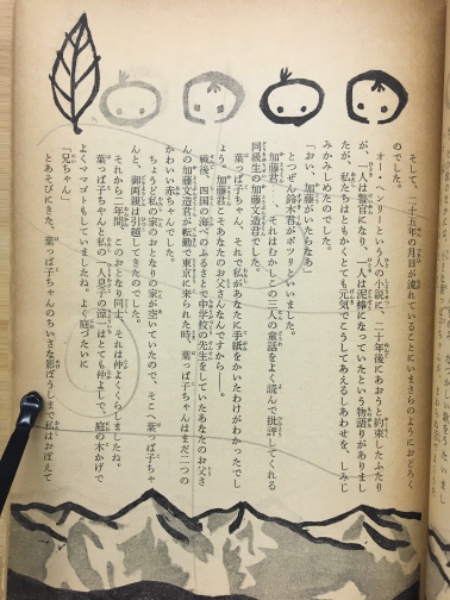 そして、二十五年の月日が流れていることにいまさらのようにおどろく
のでした。
オー・ヘンリーという人の小説に、二十年後にあおうと約束したふたり
が、一人は警官になり、一人は泥棒になっていたという物語りがありまし
たが、私たちはともかくとても元気でこうしてあえるしあわせを、しみじ
みかみしめたのでした。
「おい、加藤がいたらなあ」
とつぜん鈴木君がポツリといいました。
加藤君……、それはむかしこの三人の童話をよく読んで批評してくれる
同級生の加藤文造君でした。
葉っぱ子ちゃん、それで私があなたに手紙をかいたわけがわかったでし
ょう。加藤君こそあなたのお父さんなんですから――。
戦後、四国の海べのふるさとで中学校の先生をしていたあなたのお父さ
んの加藤文造君が転勤で東京に来られた時、葉っぱ子ちゃんはまだ二つの
かわいい赤ちゃんでした。
ちょうど私の家のおとなりの家が空いていたので、そこへ葉っぱ子ちゃ
んと、御両親は引越してきたのでした。
それから二年間、このおとなり同士、それは仲よくくらしましたね。
葉っぱ子ちゃんと私の一人息子の涼一はとても仲よしで、庭の木かげで
よくママゴトもしていましたね。よく庭づたいに
「兄ちゃん」
とあそびにきた、葉っぱ子ちゃんのちいさな影ぼうしまで私はおぼえて